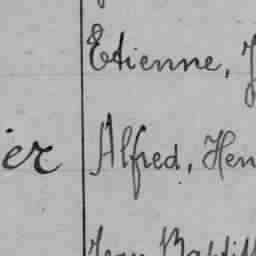 Etienne, J
er Alfred, Hen
Jean Baptist